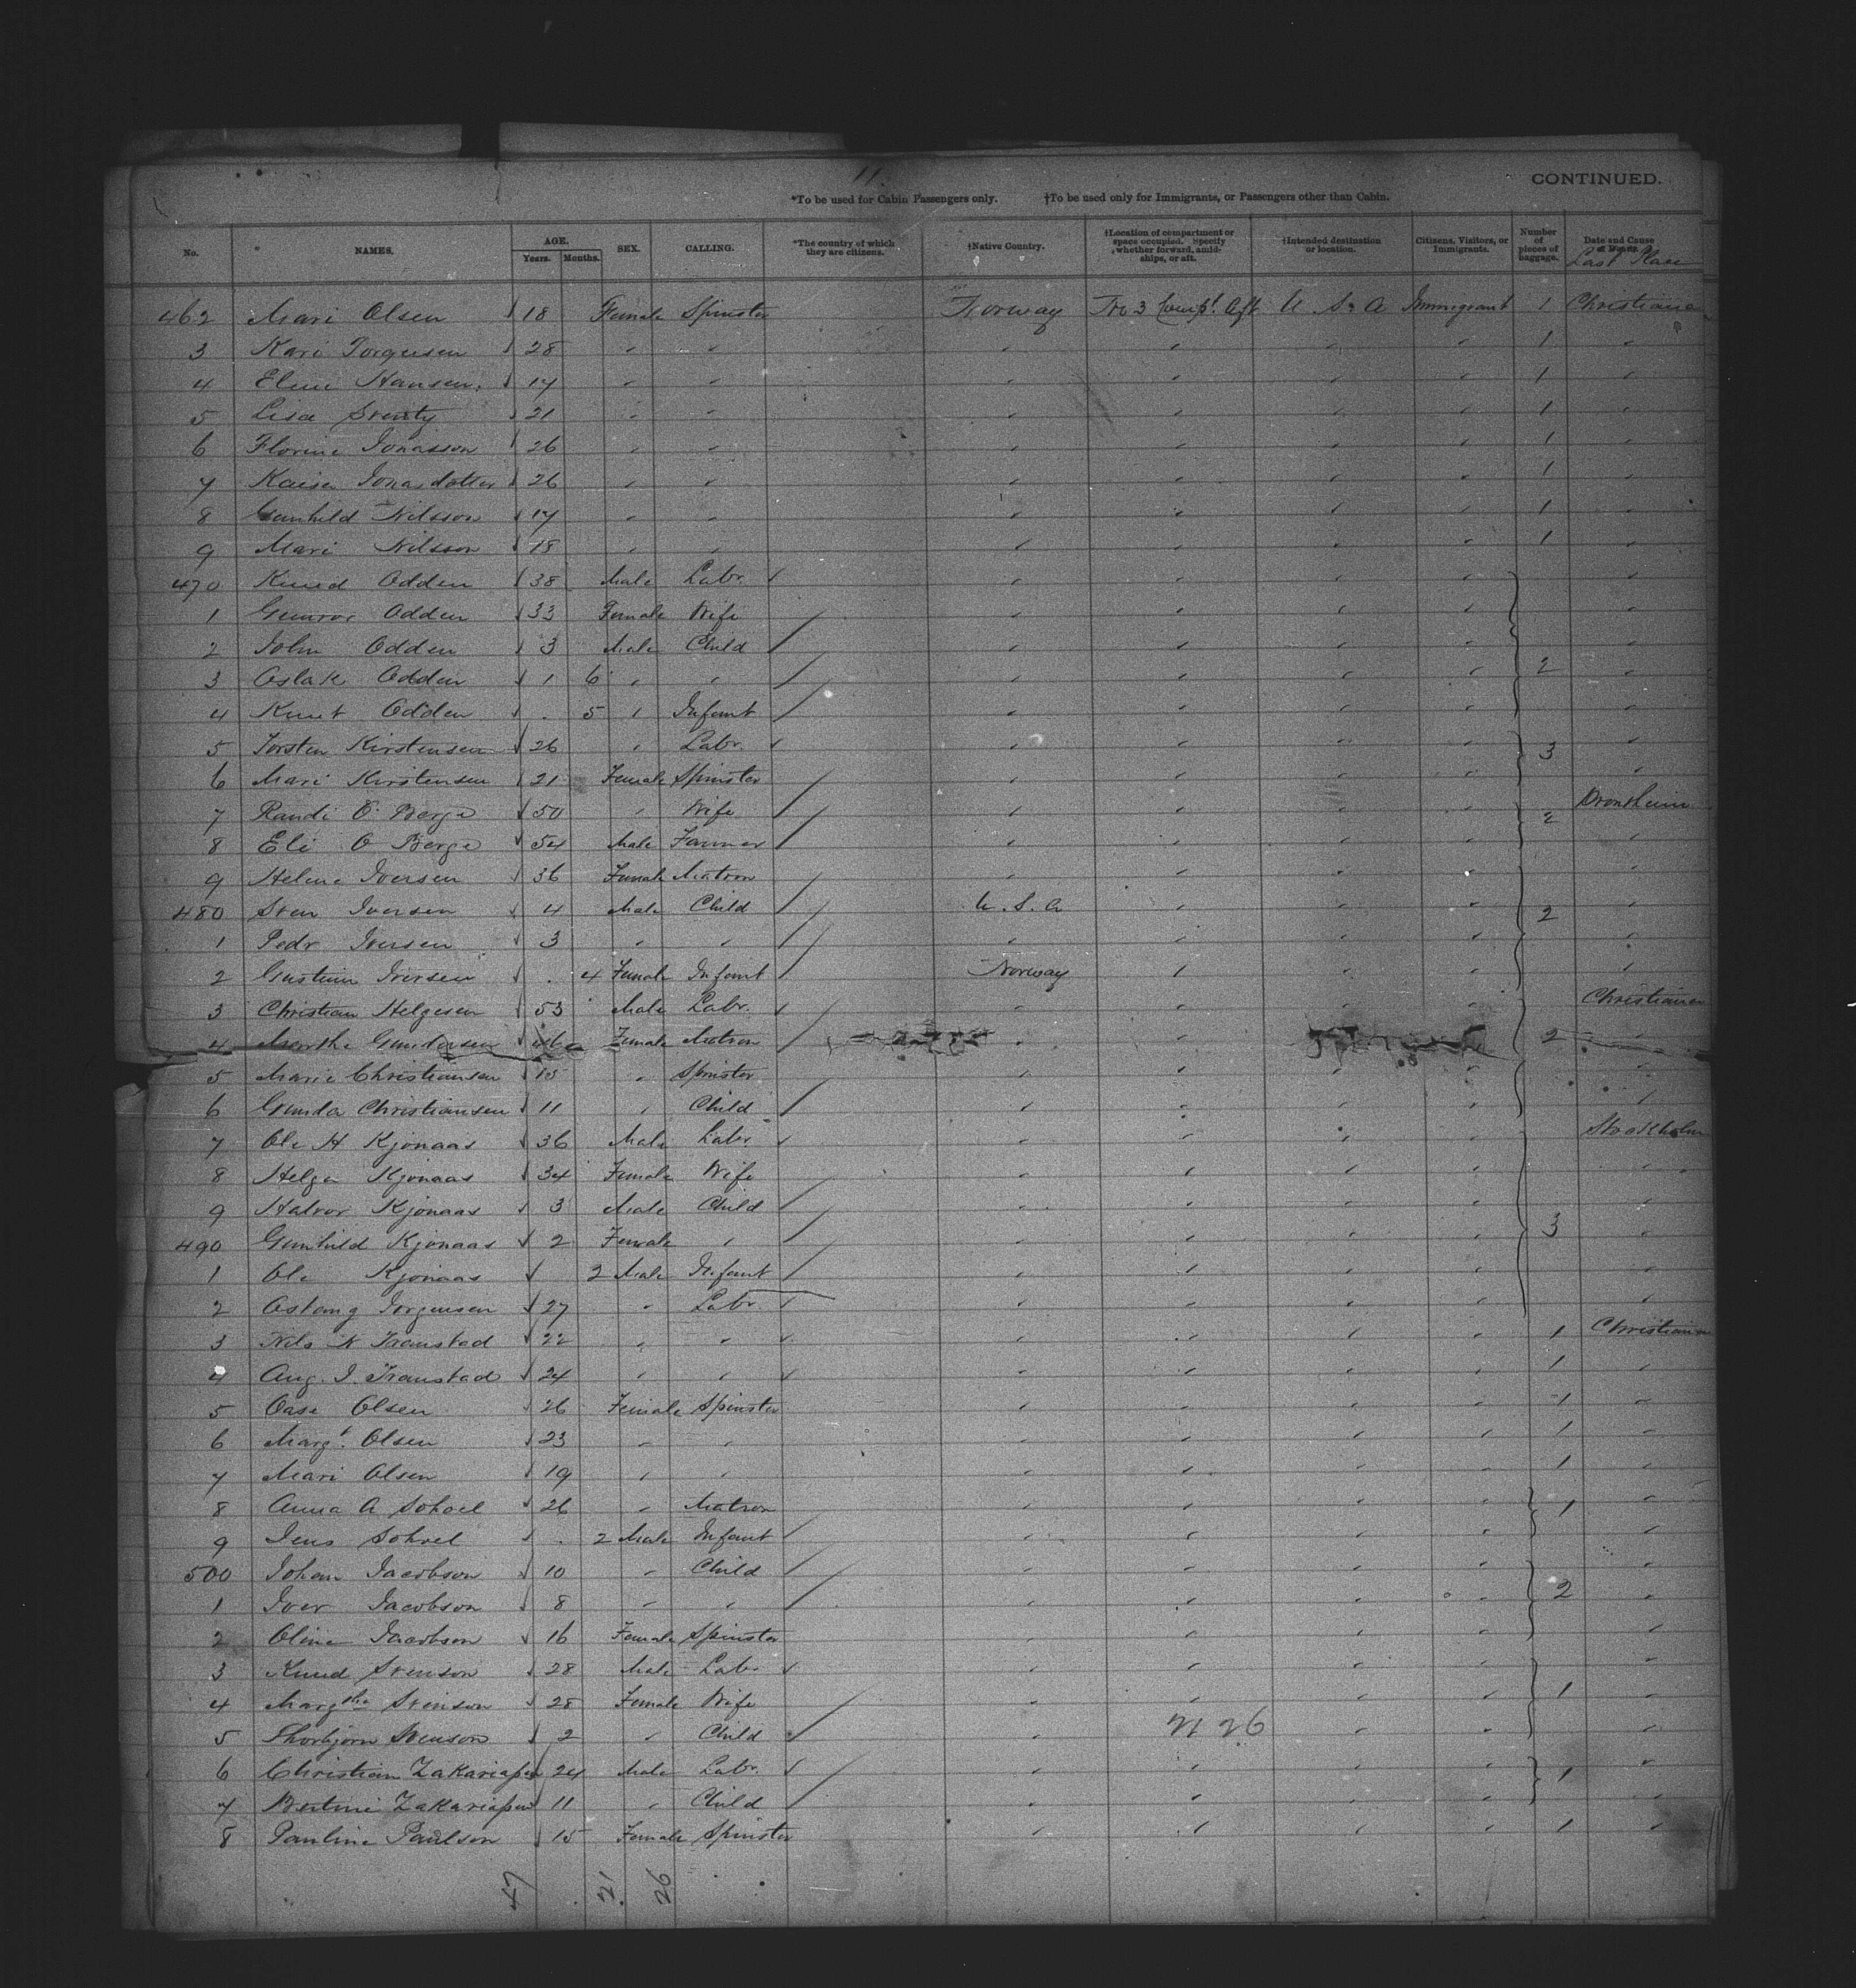 11.
CONTINUED.
*To be used for Cabin Passengers only. †To be used only for Immigrants, or Passengers other than Cabin.
No. NAMES. AGE. Years. Months. SEX. CALLING. *The country of which they are citizens. †Native Country. †Location of compartment or space occupied. Specify whether forward, amidships, or aft. †Intended destination or location. Citizens, Visitors, or Immigrants. Number of pieces of baggage. Date and Cause of Death. Last Place
462 Mari Olsen 18 Female Spinster Norway No 3 Compt. Aft U. S. A Immigrant 1 Christiana
3 Kari Torgersen 28 " " " " " " 1 "
4 Eline Hansen. 17 " " " " " " 1 "
5 Lisa 21 " " " " " " 1 "
6 Florine Jonasson 26 " " " " " " 1 "
7 Kaisa Jonasdotter 26 " " " " " " 1 "
8 Gunhild Nilsson 17 " " " " " " 1 "
9 Mari Nilsson 18 " " " " " " 1 "
470 Knud Odden 38 Male Labr. " " " " "
1 Gunvor Odden 33 Female Wife " " " " "
2 John Odden 3 Male Child " " " " "
3 Aslak Odden 1 6 " " " " " " 2 "
4 Knut Odden . 5 " Infant " " " " "
5 Torsten Kirstensen 26 " Labr. " " " " 3 "
6 Mari Kirstensen 21 Female Spinster " " " " "
7 Randi O. Berge 50 " Wife " " " " 2 Drontheim
8 Eli O Berge 54 Male Farmer " " " " "
9 Helene Iversen 36 Female Matron " " " " "
480 Sven Iversen 4 Male Child U. S. A " " " 2 "
1 Pedr Iversen 3 " " " " " " "
2 Iversen . 4 Female Infant Norway " " " "
3 Christian Helgesen 53 Male Labr. " " " " Christiana
4 Marthe Gundersen 46 Female Matron " " 2 "
5 Marie Christiansen 15 " Spinster " " " " "
6 Gunda Christiansen 11 " Child " " " " "
7 Ole H Kjonaas 36 Male Labr " " " " Stockholm
8 Helga Kjonaas 34 Female Wife " " " " "
9 Halvor Kjonaas 3 Male Child " " " " "
490 Gunhild Kjonaas 2 Female " " " " " 3 "
1 Ole Kjonaas 2 Male Infant " " " " "
2 Jorgensen 27 " Labr. " " " " "
3 Nils N Transtad 22 " " " " " " 1 Christiana
4 Aug. I. Transtad 24 " " " " " " 1 "
5 Oase Olsen 26 Female Spinster " " " " 1 "
6 Margt. Olsen 23 " " " " " " 1 "
7 Mari Olsen 19 " " " " " " 1 "
8 Anna A 26 " Matron " " " " 1 "
9 Jens . 2 Male Infant " " " " "
500 Johan Jacobson 10 " Child " " " " "
1 Iver Jacobson 8 " " " " " " 2 "
2 Oline Jacobson 16 Female Spinster " " " " "
3 Knud Svenson 28 Male Labr " " " " "
4 Margthe Svenson 28 Female Wife " " " " 1 "
5 Thorbjorn Svenson 2 " Child " 21 26 " " "
6 Christian Zakariasen 24 Male Labr. " " " " 1 "
7 Bertine Zakariasen 11 " Child " " " " "
8 Pauline Paulson 15 Female Spinster " " " " 1 "
47 21 26